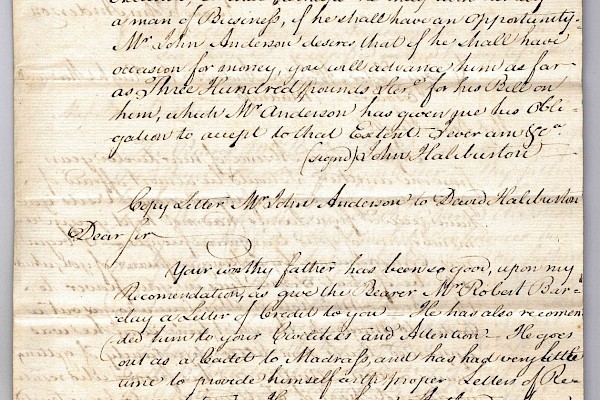 a man of Business, if he shall have an Opportunity.
Mr. John Anderson desires that if he shall have
occasion for money, you will advance him as far
as Three Hundred pounds Ster:g for his Bill on
him, which Mr. Anderson has given me his Obli-
gation to accept to that Extent. I ever am &ca.
(signd) John Haliburton
Copy Letter Mr. John Anderson to David Haliburton
Dear Sir
Your worthy father has been so good, upon my
Recomendation, as give the Bearer Mr. Robert Bar-
clay a Letter of Credit to you — He has also recomen-
ded him to your Civilities and Attention — He goes
out as a Cadet to Madrass, and has had very little
time to provide himself with proper Letters of Re-